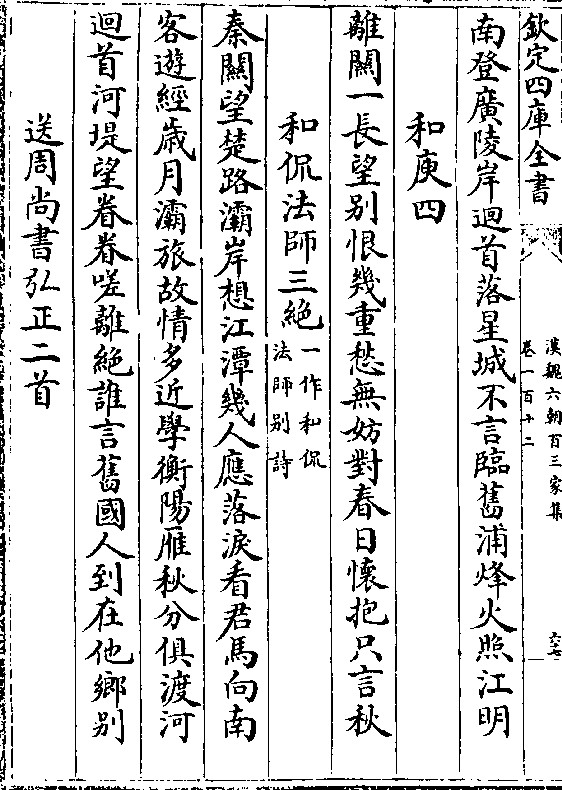 欽定四庫全書
漢魏六朝百三家集
卷一百十二
六七
南登廣陵岸迴首落星城不言臨舊浦烽火照江明
和庾四
離關一長望别恨幾重愁無妨對春日懷抱只言秋
和侃法師三絶
一作和侃
法師别詩
秦關望楚路灞岸想江潭幾人應落淚看君馬向南
客遊經歳月灞旅故情多近學衡陽雁秋分俱渡河
迴首河堤望眷眷嗟離絶誰言舊國人到在他鄉别
送周尚書弘正二首